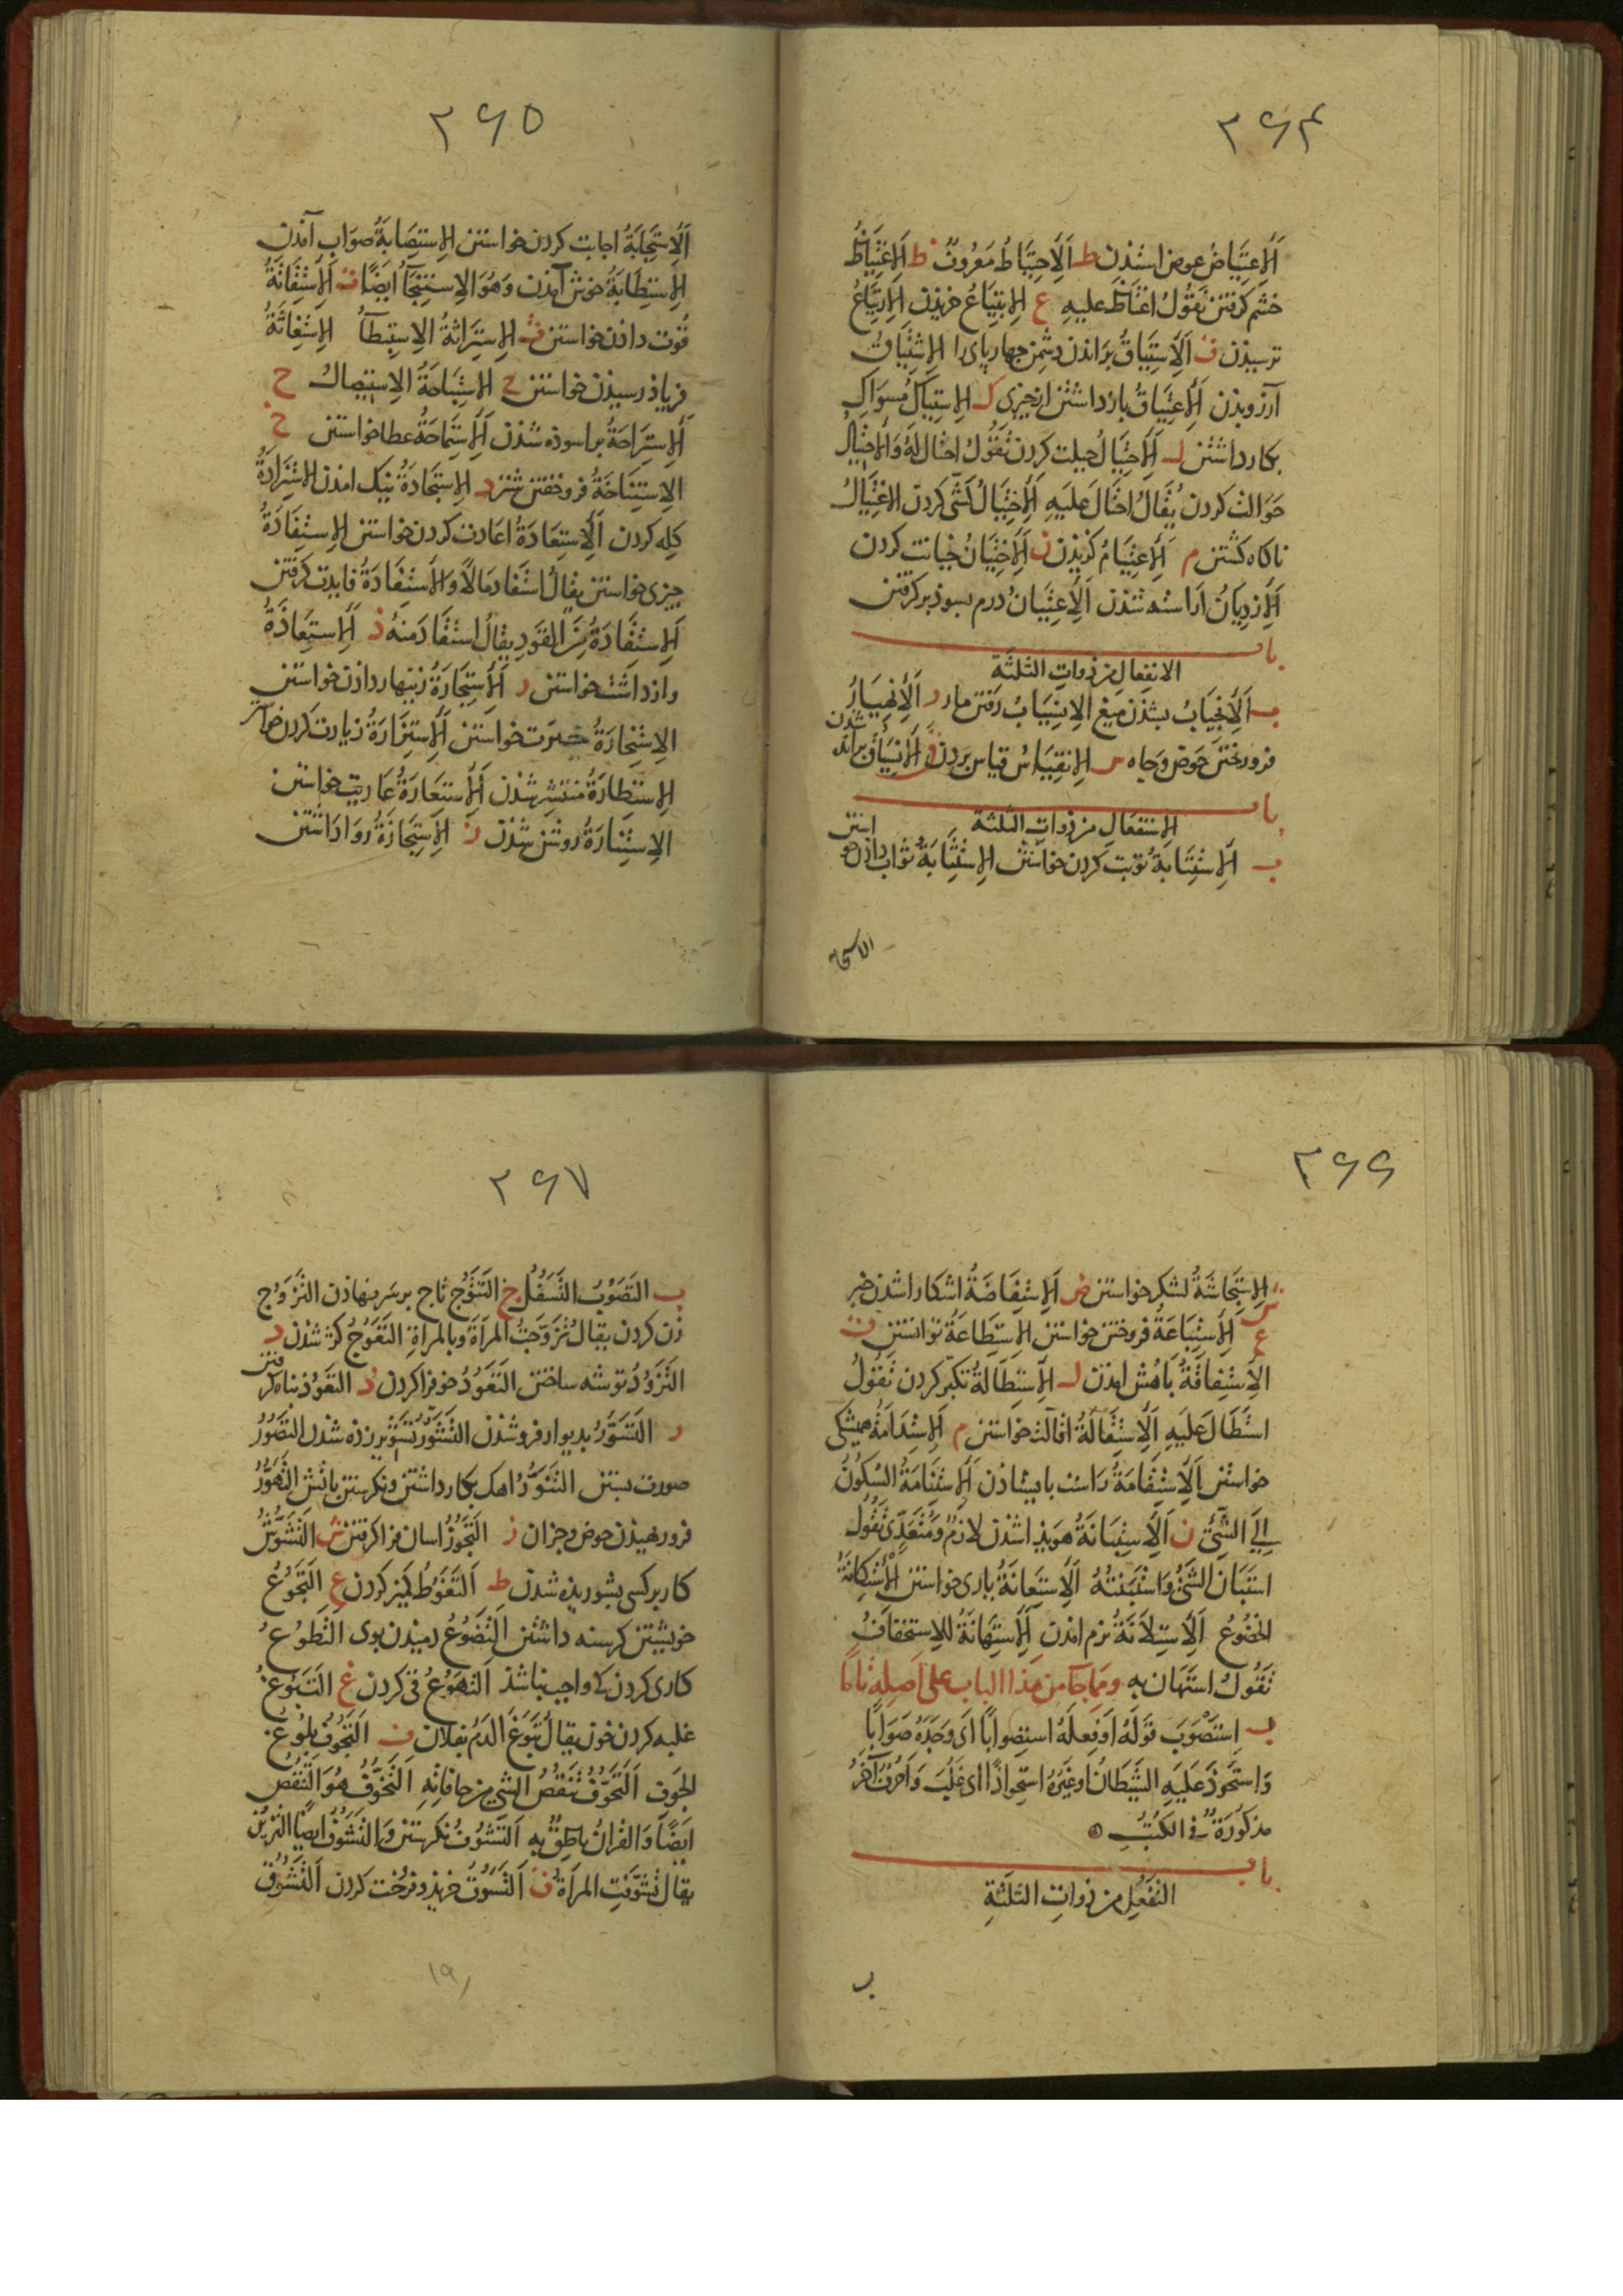 ۲۶۴
اَلِاعْتِيَاضُ عوض استدن ط اَلِاحْتِيَاطُ مَعْرُوفٌ ظ اَلِاغْتِيَاظُ
خشم كرفتن تَقُولُ اغتَاظَ عليهِ ع الِابْتِيَاعُ خريذن اَلِارْتِيَاعُ
ترسيذن ف اَلِاسْتِيَاقُ براندن دشمن جهارباى را الِاشْتِيَاقُ
آرزو بذن اَلِاعْتِيَاقُ بازداشتن از جيزى ك الِاسْتِيَاكُ مسواك
بكار داشتن ل اَلِاحْتِيَالُ حيلت كردن تَقُولُ احْتَالَ لَهُ وَالِاحْتِيَالُ
حَوَالت كردن يُقَالُ احْتَالَ عَلَيهِ اَلِاخْتِيَالُ كشى كردن الِاغْتِيَالُ
ناكاه كشتن م اَلِاعْتِيَامُ كزيذن ن اَلِاخْتِيَانُ خيانت كردن
اَلِازْدِيَانُ اراسته شدن اَلِاعْتِيَانُ درم بسوذ بركرفتن
باب
الانفعال من ذوات الثلثة
ب اَلِانْجِيَابُ بشذن ميغ الِانْسِيَابُ رفتن مار ر اَلِانْهِيَارُ
فرو ريختن حوض وجاه س الِانْقِيَاسُ قياس بردن ق اَلِانْسِيَاقُ برانده شدن
باب
الاستفعال من ذوات الثلثة
ب اَلِاسْتِتَابَةُ توبت كردن خواستن الِاسْتِثَابَةُ ثواب دادن خواستن
الاستجابة
۲۶۵
اَلِاسْتِجَابَةُ اجابت كردن خواستن الِاسْتِصَابَةُ صَوَاب آمذن
الِاستِطَابَةُ خوش آمذن وَهُوَ الِاسْتِنْجَآءُ ايضًا ت اَلِاسْتِقَاتَةُ
قُوت دادن خواستن ث الِاسْتِرَاثَةُ الِاسْتِبْطَآءُ الِاسْتِغَاثَةُ
فرياذ رسيذن خواستن ح الِاسْتِبَاحَةُ الِاسْتِيصالُ ح
اَلِاسْتِرَاحَةُ براسوده شدن اَلِاسْتِمَاحَةُ عطا خواستن خ
الِاسْتِنَاخَةُ فرو خفتن شتر د الِاسْتِجَادَةُ نيك امذن الِاسْتِزَادَةُ
كله كردن اَلِاسْتِعَادَةُ اعادت كردن خواستن الِاسْتِفَادَةُ
جيزى خواستن يقالُ استَفادَ مَالًا وَالِاسْتِفَادَةُ فايدت كرفتن
اَلِاسْتِقَادَةُ مِنَ القَوَدِ يقالُ استَقَادَ مِنهُ ذ اَلِاسْتِعَاذَةُ
وازداشت خواستن ر اَلِاسْتِجَارَةُ زينهار دادن خواستن
الِاسْتِخَارَةُ خيرت خواستن اَلِاسْتِزَارَةُ زيارت كردن خواستن
الِاستِطارَةُ منتشر شدن اَلِاستِعَارَةُ عَاريت خواستن
الِاسْتِنَارَةُ روشن شدن ز الِاسْتِجَازَةُ روا داشتن
۲۶۶
ش الِاسْتِجَاشَةُ لشكر خواستن ض اَلِاسْتِفَاضَةُ اشكارا شدن خبر
ع اَلِاسْتِبَاعَةُ فروختن خواستن الِاسْتِطَاعَةُ توانستن ق
الِاسْتِفاقَةُ باهُش امدن ل اَلِاسْتِطَالَةُ تكبر كردن تَقُولُ
اسْتَطَالَ عَلَيهِ اَلِاسْتِقَالَةُ اقالت خواستن م اَلِاسْتِدَامَةُ هميشكى
خواستن اَلِاسْتِقَامَةُ رَاست بايستاذن اَلِاسْتِنَامَةُ السُكُونُ
اِلَى الشَّيْءِ ن اَلِاسْتِبَانَةُ هويذا شدن لازمٌ وَمُتَعَدٍّ تَقُولُ
استَبَانَ الشَّيْءُ وَاسْتَبَنْتُهُ اَلِاستِعانَةُ يارى خواستن اَلِاسْتِكَانَةُ
الخضُوعُ اَلِاسْتِلَانَةُ نرم امدن اَلِاسْتِهَانَةُ الاستخفافُ
تَقُولُ استَهَان بهِ ومما جآء من هذا الباب على اَصلِهِ تامًّا
ب اِستَصْوَبَ قَولَهُ اَو فِعلَهُ استِصوابًا اى وَجَدَهُ صَوَابًا
وَاستَحوَذَ عَلَيهِ الشَّيطَانُ او غَيرُهُ استِحوَاذًا اى غَلَبَ وَاَحرُفٌ اُخَرُ
مذكُورَةٌ فى الكتُبِ
باب
التفَعُّلِ من ذواتِ الثلثةِ
ب
۲۶۷
ب التصَوُّبُ التَّسَفُّلُ ج التَتَوُّجُ تاج بر سر نهاذن التَزَوُّجُ
زن كردن يقالُ تَزَوَّجتُ المرأَةَ وبالمرأةِ التعَوُّجُ كژ شدن د
التَزَوُّدُ توشه ساختن التعَوُّدُ خو فرا كردن ذ التعَوُّذُ پناه كرفتن
ر التسَوُّرُ بديوار فرو شدن التَشَوُّرُ تشوير زذه شدن التصَوُّرُ
صورت بستن التنَوُّرُ اهك بكار داشتن ونكرستن بآتش التهَوُّرُ
فرو رهيذن حوض وجزان ز التجَوُّزُ اسان فرا كرفتن ش التشَوُّشُ
كار بر كسى بشوريذه شدن ط التغَوُّطُ كميز كردن ع التجَوُّعُ
خويشتن كرسنه داشتن التضَوُّعُ دميذن بوى التطَوُّعُ
كارى كردن كى واجب نباشذ التهَوُّعُ قى كردن غ التبَوُّغُ
غلبه كردن خون يقال تَبَوَّغَ الدَمُ بفلان ف التجَوُّفُ بلوغ
الجَوفِ التَحَوُّفُ تنَقُّصُ الشىءِ من حافاتِهِ التَخَوُّفُ هُوَ التنَقُّصُ
ايضًا وَالقرانُ ناطِقٌ بِهِ التَشَوُّفُ نكرستن وَالتَشَوُّفُ ايضًا التزَيُّنُ
يقال تشَوَّفَتِ المرأةُ ق التَسَوُّقُ خريذ وفروخت كردن التَشَوُّقُ
۱۹۱